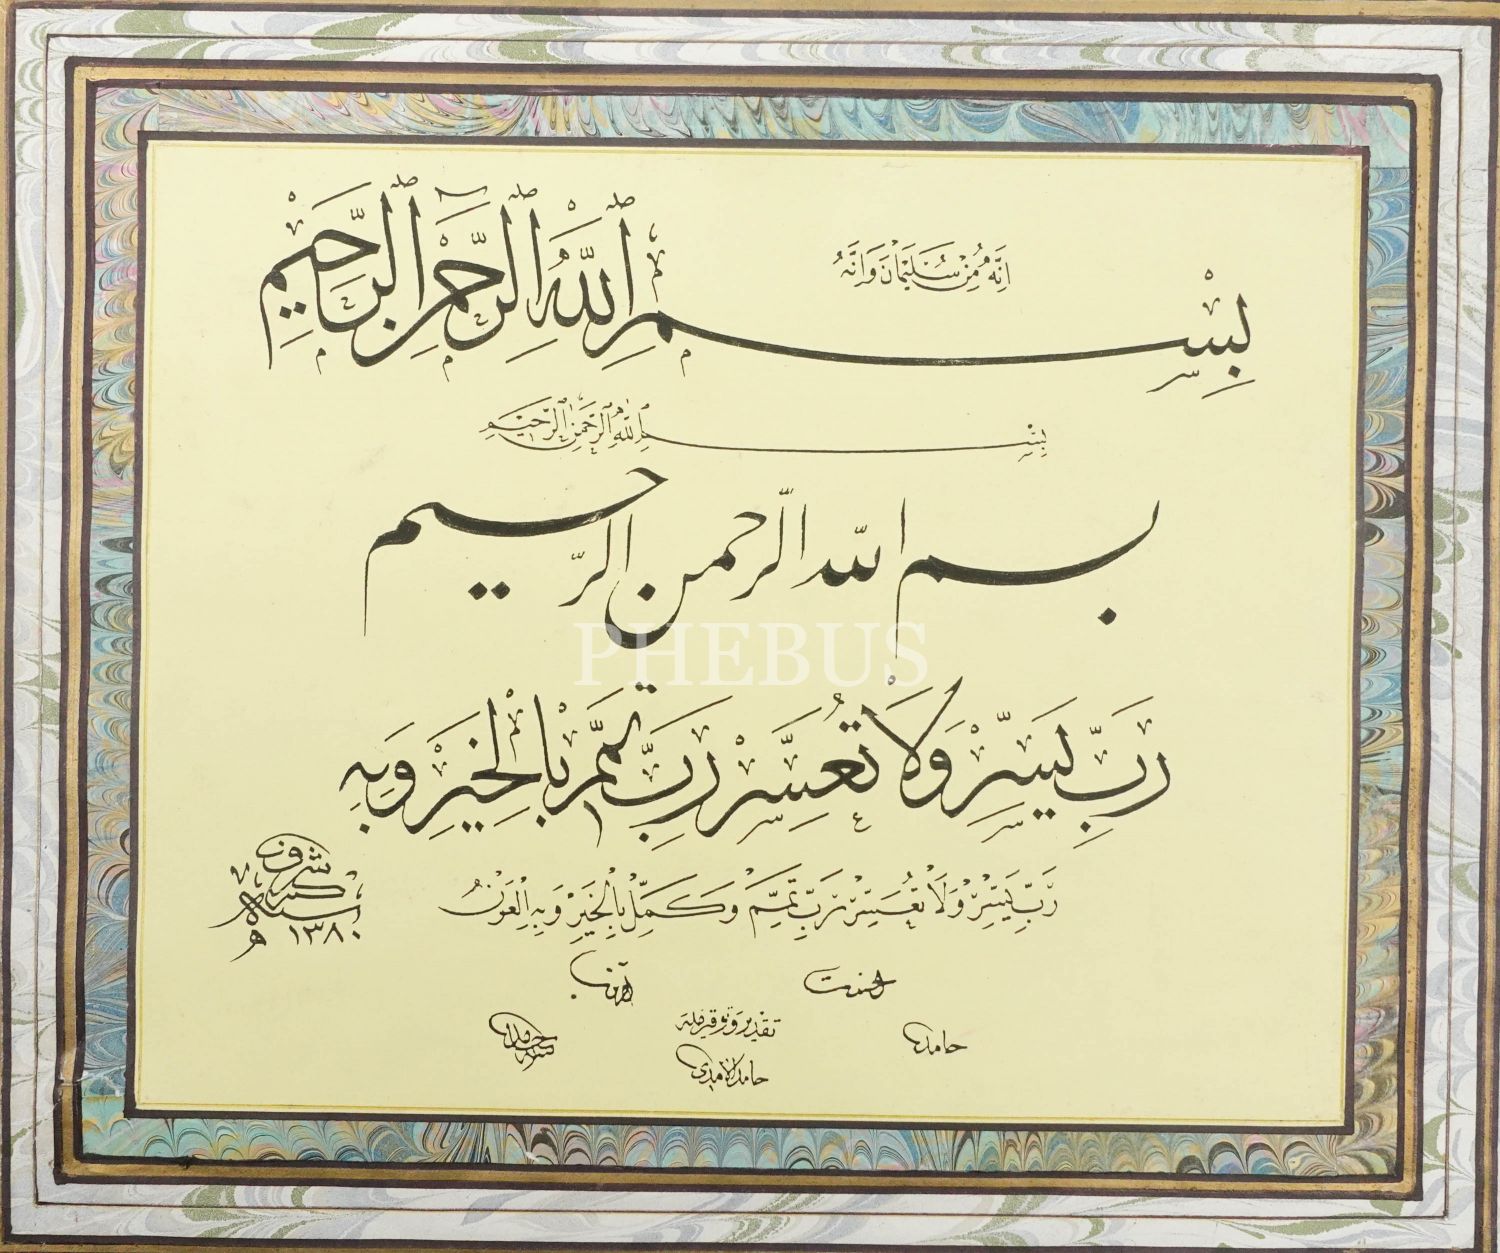 اِنَّهُ مِنْ سُلَيْمَانَ وَاِنَّهُ
بِسْمِ اللّٰهِ الرَّحْمٰنِ الرَّحِيمِ
بِسْمِ اللّٰهِ الرَّحْمٰنِ الرَّحِيمِ
بسم اللّه الرّحمن الرّحيم
PHEBUS
رَبِّ يَسِّرْ وَلَا تُعَسِّرْ رَبِّ تَمِّمْ بِالْخَيْرِ وَبِهِ
رَبِّ يَسِّرْ وَلَا تُعَسِّرْ رَبِّ تَمِّمْ وَكَمِّلْ بِالْخَيْرِ وَبِهِ الْعَوْنُ
١٣٨٠
احسنت
تقدير وتوقيرمله
حامد
حامد الآمدى